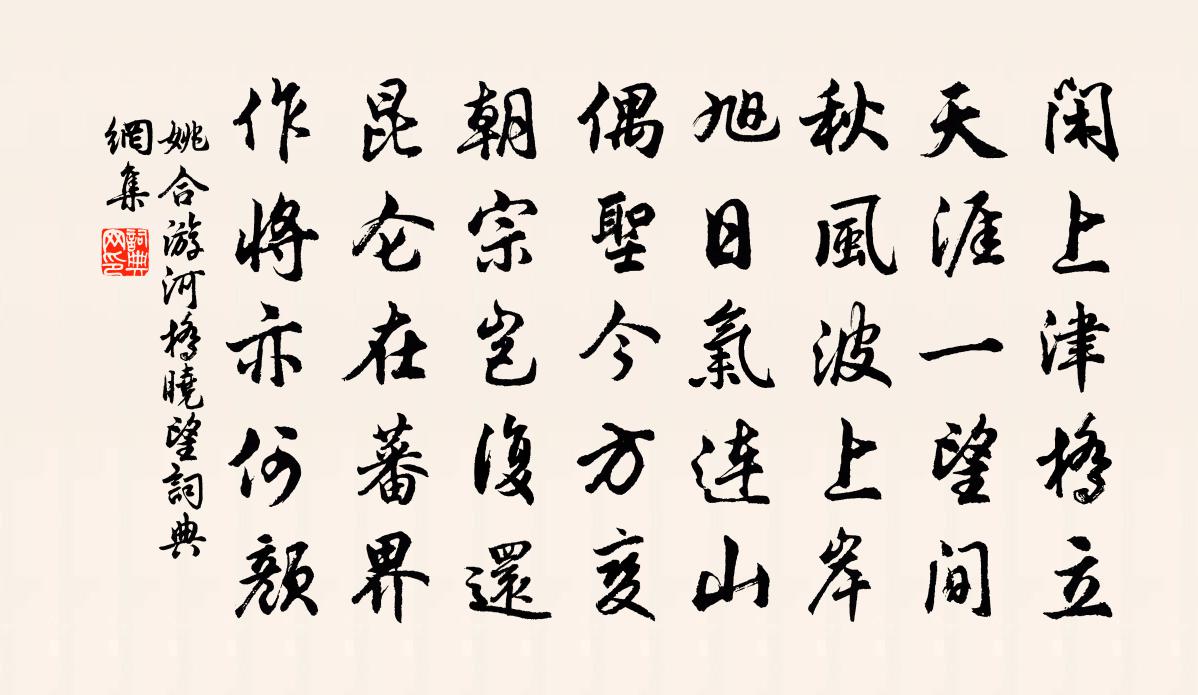 閑上津橋立
天涯一望間
秋風波上岸
旭日氣連山
偶聖今方變
朝宗豈復還
昆仑在蕃界
作將亦何顏
姚合游河橋曉望詞典
網集
詞典
网印